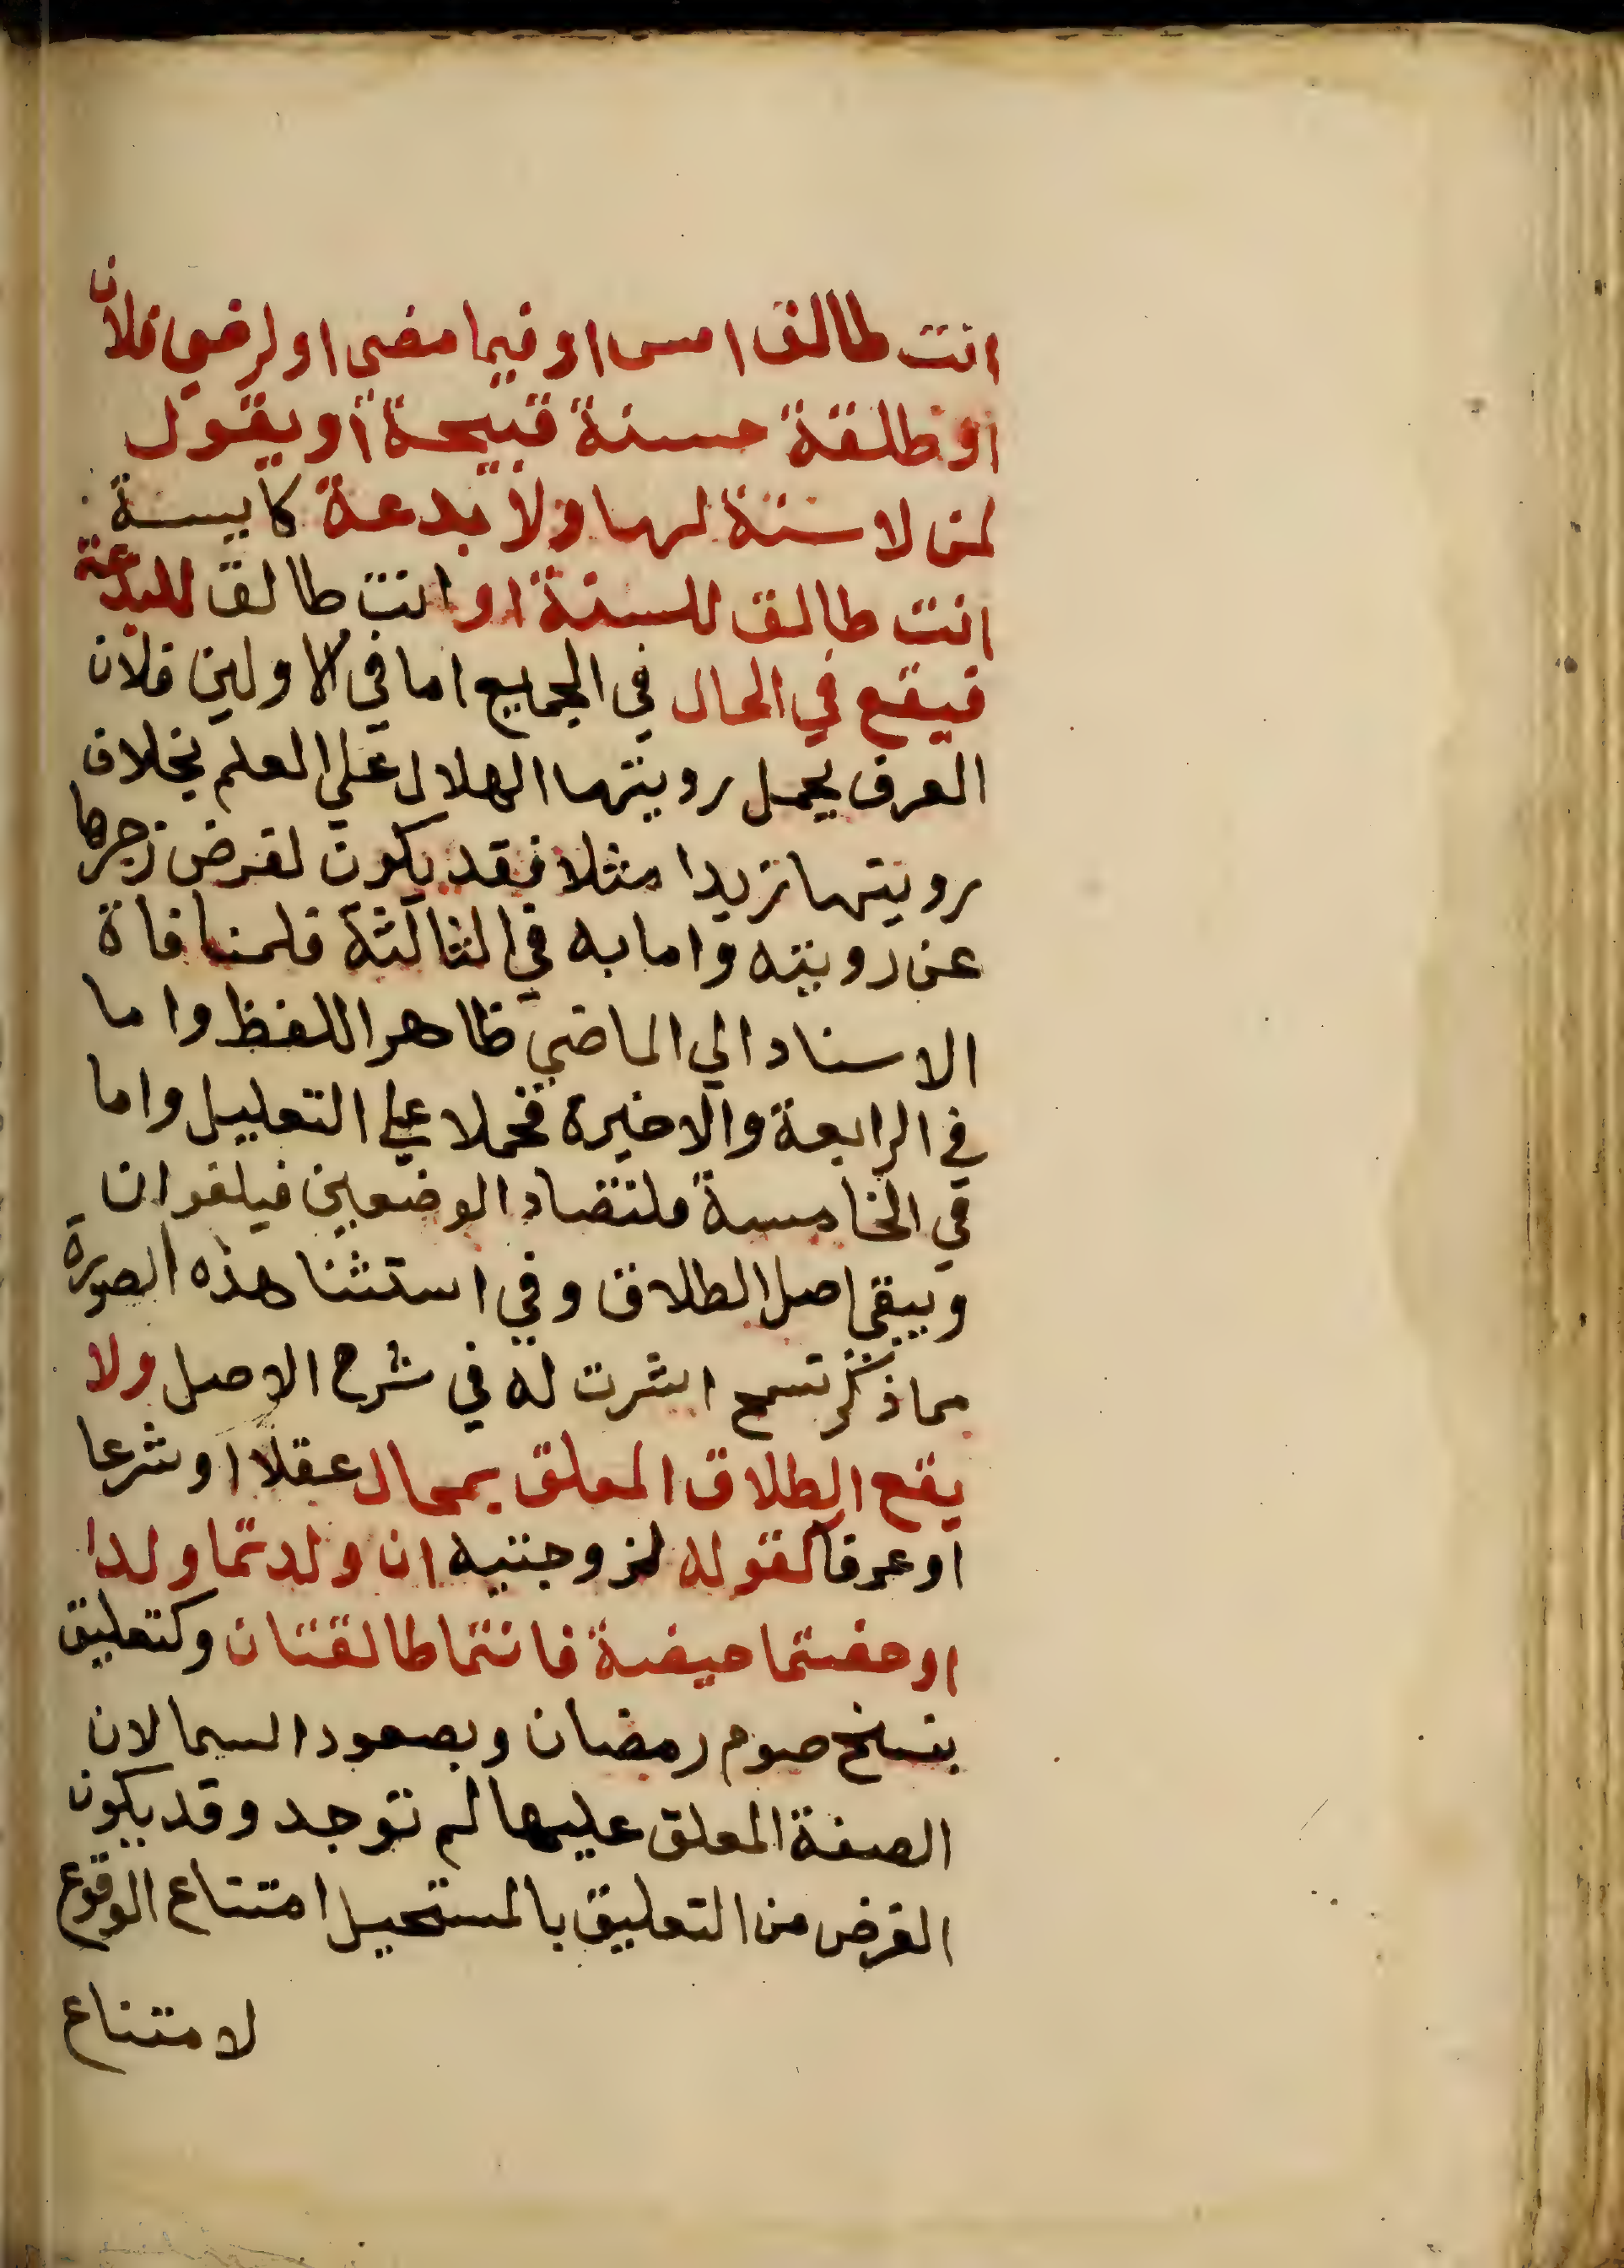 انت طالق امس او فيما مضي او لرضي فلان
او طلقة حسنة قبيحة او يقول
لمن لا سنة لها ولا بدعة كايسة
انت طالق للسنة او انت طالق للبدعة
فيقع في الحال في الجميع اما في الاولين فلان
العرف يحمل رويتها الهلال علي العلم بخلاف
رويتها زيدا مثلا فقد يكون لغرض زجرها
عن رويته واما به في الثالثة فلمنافاة
الاسناد الي الماضي ظاهر اللفظ واما
في الرابعة والاخيرة فحملا علي التعليل واما
في الخامسة فلتضاد الوضعين فيلغوان
ويبقي اصل الطلاق وفي استثنا هذه الصورة
مما ذكر تسمح اشرت له في شرح الاصل ولا
يقع الطلاق المعلق بمحال عقلا او شرعا
او عرفا كقوله لزوجتيه ان ولدتما ولدا
او حضتما حيضة فانتما طالقتان وكتعليق
بنسخ صوم رمضان وبصعود السما لان
الصفة المعلق عليها لم توجد وقد يكون
الغرض من التعليق بالمستحيل امتناع الوقوع
لامتناع